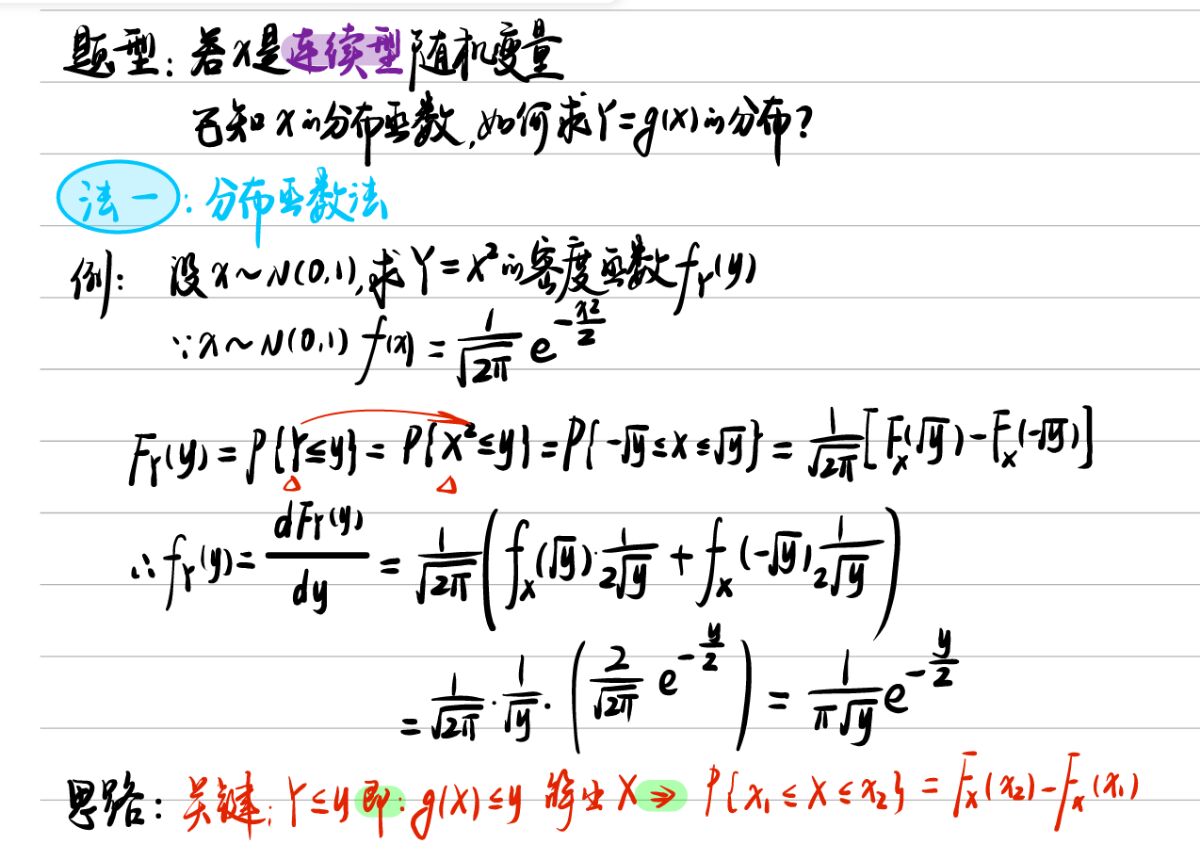 题型：若X是连续型随机变量
已知X的分布函数，如何求Y=g(X)的分布？
法一：分布函数法
例：设X~N(0,1)，求Y=X²的密度函数f_Y(y)
∵X~N(0,1) f(x) = 1/√(2π) e^(-x²/2)
F_Y(y) = P{Y≤y} = P{X²≤y} = P{-√y≤X≤√y} = 1/√(2π) [F_X(√y) - F_X(-√y)]
∴f_Y(y) = dF_Y(y)/dy = 1/√(2π) (f_X(√y)·1/(2√y) + f_X(-√y) 1/(2√y))
= 1/√(2π) · 1/√y · (2/√(2π) e^(-y/2)) = 1/(π√y) e^(-y/2)
思路：关键：Y≤y 即：g(X)≤y 解出X ⇒ P{x₁≤X≤x₂} = F_X(x₂) - F_X(x₁)